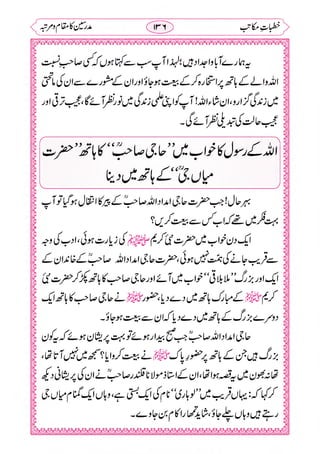 خطباتِ مکاتب ۱۳۶ مدرسین کا مقام و مرتبہ
یہ ہمارے آبا و اجداد ہیں؛ لہٰذا آپ سب سے کہتا ہوں کہ کسی صاحبِ نسبت
اللہ والے کے ہاتھ پر استخارہ کر کے بیعت ہو جاؤ اور ان کے مشورے سے ان کی ماتحتی
میں زندگی گزارو، ان شاء اللہ! آپ کو اپنی علمی زندگی میں نور نظر آئے گا، عجیب ترقی اور
عجیب حالت کی تبدیلی نظر آئے گی۔
اللہ کے رسول کا خواب میں ’’حاجی صاحبؒ‘‘ کا ہاتھ ’’حضرت
میاں جیؒ‘‘ کے ہاتھ میں دینا
بہر حال! جب حضرت حاجی امداد اللہ صاحبؒ کے پیر کا انتقال ہو گیا تو آپ
بہت فکر میں تھے کہ اب کس سے بیعت کریں؟
ایک دن خواب میں حضرت نبیٔ کریم ﷺ کی زیارت ہوئی، ادب کی وجہ
سے قریب جانے کی ہمت نہیں ہوئی، حضرت حاجی امداد اللہ صاحبؒ کے خاندان کے
ایک اور بزرگ ’’ملا بلاقی‘‘ خواب میں آئے اور حاجی صاحب کا ہاتھ پکڑ کر حضرت نبیٔ
کریم ﷺ کے مبارک ہاتھ میں دے دیا، حضور ﷺ نے حاجی صاحب کا ہاتھ ایک
دوسرے بزرگ کے ہاتھ میں دے دیا کہ ان سے بیعت ہو جاؤ۔
حاجی امداد اللہ صاحبؒ جب صبح بیدار ہوئے تو بہت پریشان ہوئے کہ یہ کون
بزرگ ہیں جن کے ہاتھ پر حضور پاک ﷺ نے بیعت کروایا؟ کچھ سمجھ میں نہیں آتا تھا،
تھانہ بھون میں یہ قصہ ہوا تھا، ان کے استاذ مولانا قلندر صاحبؒ نے ان کی پریشانی دیکھ
کر کہا کہ: یہاں قریب میں ’’لوہاری‘‘ نام کی ایک بستی ہے، وہاں ایک گمنام میاں جی
رہتے ہیں وہاں چلے جاؤ، شاید تمھارا کام ان سے بن جاوے۔